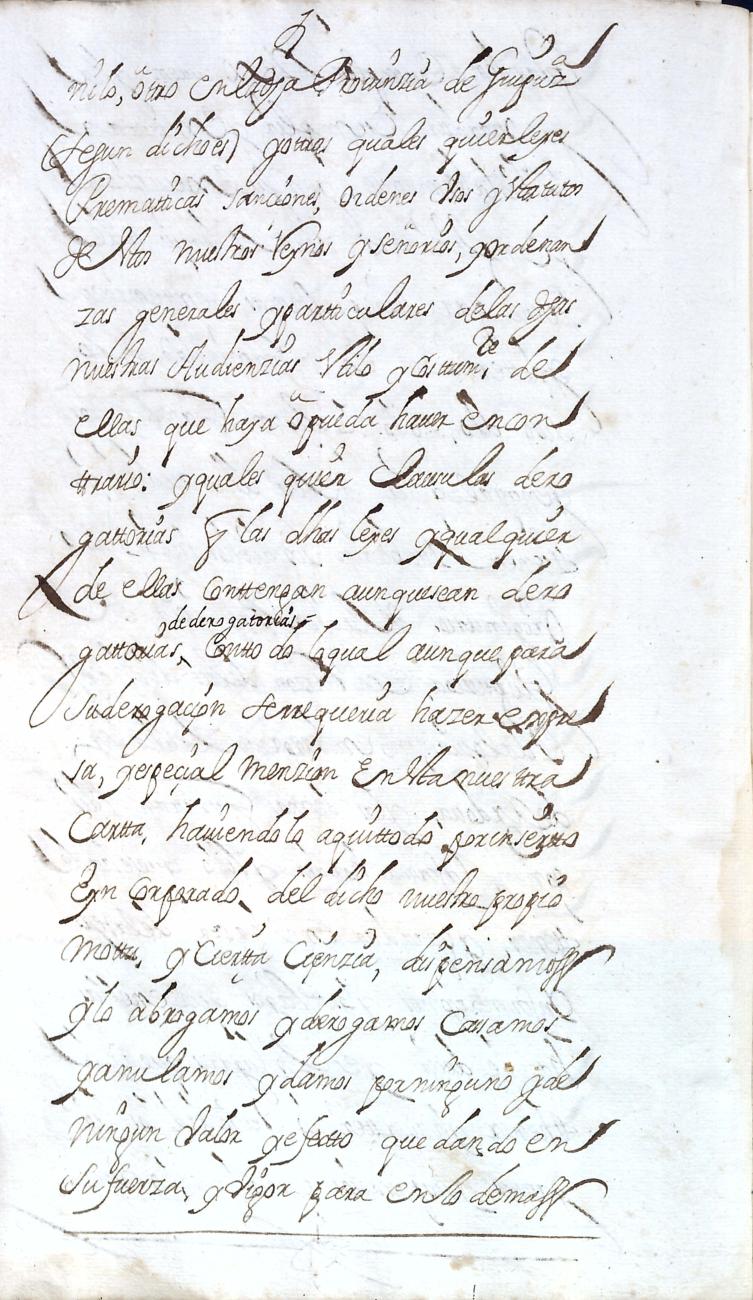 nilo, otro en la dha Provinzia de Guipuza
(segun dicho es) y otras quales quier leyes
Prematicas sanciones, ordenes Vsos y Vstatutos
de Vtos nuestros Reynos y señorios, y ordenan
zas generales y particulares de las dhas
nuestras Audienzias Vtilo y Costumre de
ellas que haya o pueda hauer en con
ttrario: y quales quier Clausulas dero
gattorias q las dhas leyes y qualquier
de ellas Conttengan aunque sean dero
gattorias, de derogatorias= Con tto do lo qual aunque para
su derogación se rrequeria hazer expre
sa, y especial Menzion En Vta nuesttra
Cartta, hauiendolo aqui ttodo por insertto
Eyn Corporado, del dicho nuestro propio
Mottu, y Ciertta Cienzia, dispensamos
y lo abrogamos y derogamos Casamos
y anulamos y damos por ninguno y de
ningun Valor y efectto quedando en
Su fuerza, y Vigor para en lo demas